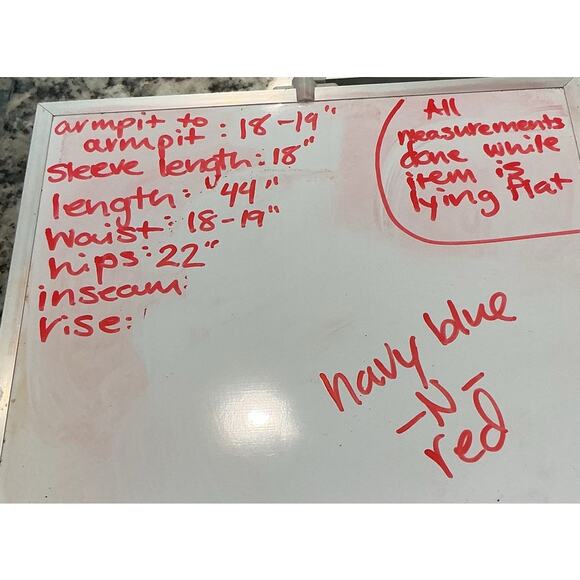 armpit to
armpit: 18-19"
sleeve length: 18"
length: 44"
Waist: 18-19"
hips: 22"
inseam:
rise:
All
measurements
done while
item is
lying flat
navy blue
-N-
red